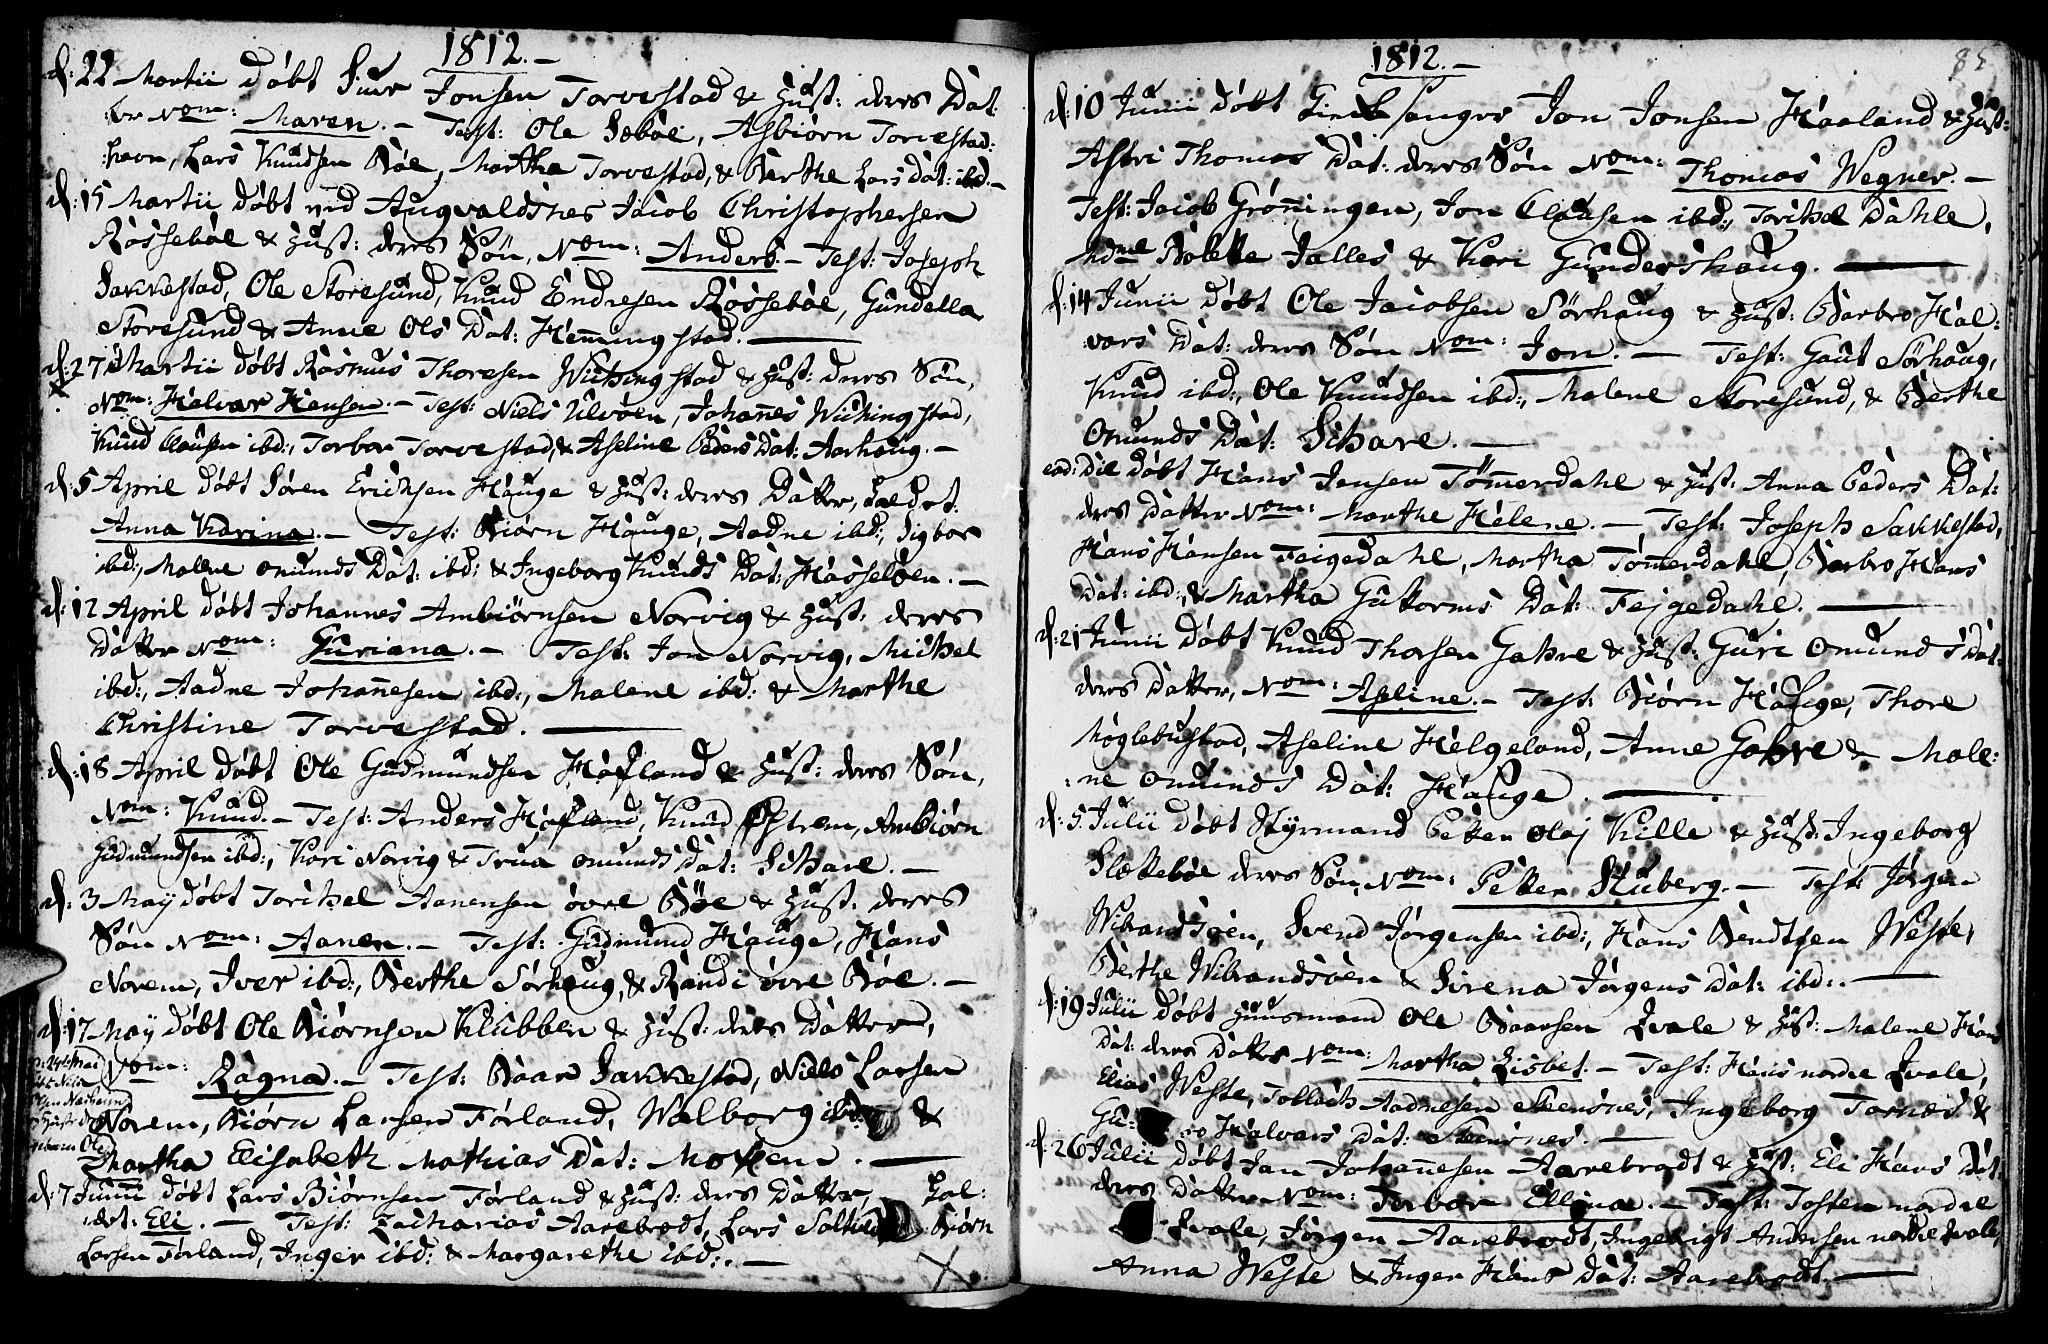 1812.-
d: 22 Martii døbt Siur Jonsen Torvestad & Hust: deres Dat:
ter Nom: Maren. - Test: Ole Sebøe, Asbiørn Torvestad:
:havn, Lars Knudsen Bøe, Martha Torvestad, & Berthe Lars Dat: ibd:-
d: 15 Martii døbt ved Augvaldsnes Jacob Christophersen
Røssebøe & Hust: deres Søn, Nom: Anders. - Test: Joseph
Sakkestad, Ole Storesund, Knud Endresen Røssebøe, Gundella
Storesund & Anne Ols Dat: Hemingstad.
d: 27 Martii døbt Rasmus Thoresen Wichingstad & Hust: deres Søn,
Nom: Halvar Hensen. - Test: Niels Ulvøen, Johannes Wichingstad,
Knud Clausen ibd:, Torbor Torvestad, & Aseline Peders Dat: Aarhoug. -
d: 5 April døbt Søren Erichsen Hauge & Hust: deres Datter, kaldet.
Anna Karina. - Test: Biørn Hauge, Aadne ibd:, Sigbor
ibd:, Malene Omunds Dat: ibd: & Ingeborg Knuds Dat: Hasseløen. -
d: 12 April døbt Johannes Ambiørnsen Norvig & Hust: deres
Datter Nom: Guriana. - Test: Jon Norvig, Michel
ibd:, Aadne Johannesen ibd:, Malene ibd: & Marthe
Christine Torvestad.
d: 18 April døbt Ole Gudmundsen Hafland & Hust: deres Søn,
Nom: Knud. - Test: Anders Hafland, Knud Østrem, Ambiørn
Gudmundsen ibd:, Kari Norvig & Trua Omunds Dat: Schare. -
d: 3 May døbt Torichel Aanensen øvre Bøe & Hust: deres
Søn Nom: Aanen. - Test: Gudmund Hauge, Hans
Norem, Iver ibd:, Berthe Sørhaug, & Randi øvre Bøe. -
d: 17 May døbt Ole Biørnsen Klubben & Hust: deres Datter,
Nom: Ragna. - Test: Baar Sakkestad, Niels Larsen
Norem, Biørn Larsen Førland, Walborg ibd: &
Martha Elisabeth Mathias Dat: Moxem.
d: 7 Junii døbt Lars Biørnsen Førland & Hust: deres Datter, kal:
det: Eli. - Test: Zacharias Aarebrodt, Lars Biørn
Larsen Førland, Inger ibd: & Margarethe ibd:. -
1812.-
85
d: 10 Junii døbt Jon Jonsen Haaland & Hust:
Astri Thomas Dat: deres Søn Nom: Thomas Wegner. -
Test: Jacob Grønningen, Jon Clausen ibd:, Torichel Dahle,
Mdme Bolette Jalles & Kari Gundershaug.
d: 14 Junii døbt Ole Jacobsen Sørhaug & Hust: Barbro Hal:
:vars Dat: deres Søn Nom: Jon. - Test: Gaut Sørhaug,
Knud ibd:, Ole Knudsen ibd:, Malene Storesund, & Berthe
Omunds Dat: Schare. -
ead: Die døbt Hans Jensen Tømerdahl & Hust: Anna Peders Dat:
deres Datter Nom: Marthe Helene. - Test: Joseph Sakkestad,
Hans Hansen Feigedahl, Martha Tømerdahl, Barbro Hans
Dat: ibd:, & Martha Guttorms Dat: Fejgedahl.
d: 21 Junii døbt Knud Thorsen Gahre & Hust: Guri Omunds Dat:
deres Datter, Nom: Aseline. - Test: Biørn Hauge, Thore
Møglebustad, Aseline Helgeland, Anne Gahre & Male:
:ne Omunds Dat: Hauge.
d: 5 Julii døbt Styrmand Petter Olaj Kille & Hust: Ingeborg
Slettebøe deres Søn, Nom: Petter Stuberg. - Test: Jørgen
Wibrandsøen, Svend Jørgensen ibd:, Hans Bendtsen Weste,
Berthe Wibrandsøen & Sirena Jørgens Dat: ibd:.
d: 19 Julii døbt Huusmand Ole Baarsen Qvale & Hust: Malene Hans
Dat: deres Datter Nom: Martha Lisbet. - Test: Hans nordre Qvale,
Elias Weste, Tollach Aadnesen Steensnes, Ingeborg Tornæs &
Halvars Dat: Steensnes.
d: 26 Julii døbt Jan Johannesen Aarebrodt & Hust: Eli Hans Dat:
deres Datter Nom: Torbor Ellina. - Test: Tosten nordre
Qvale, Jørgen Aarebrodt, Ingebrigt Andersen nordre Qvale,
Anna Weste & Inger Hans Dat: Aarebrodt.